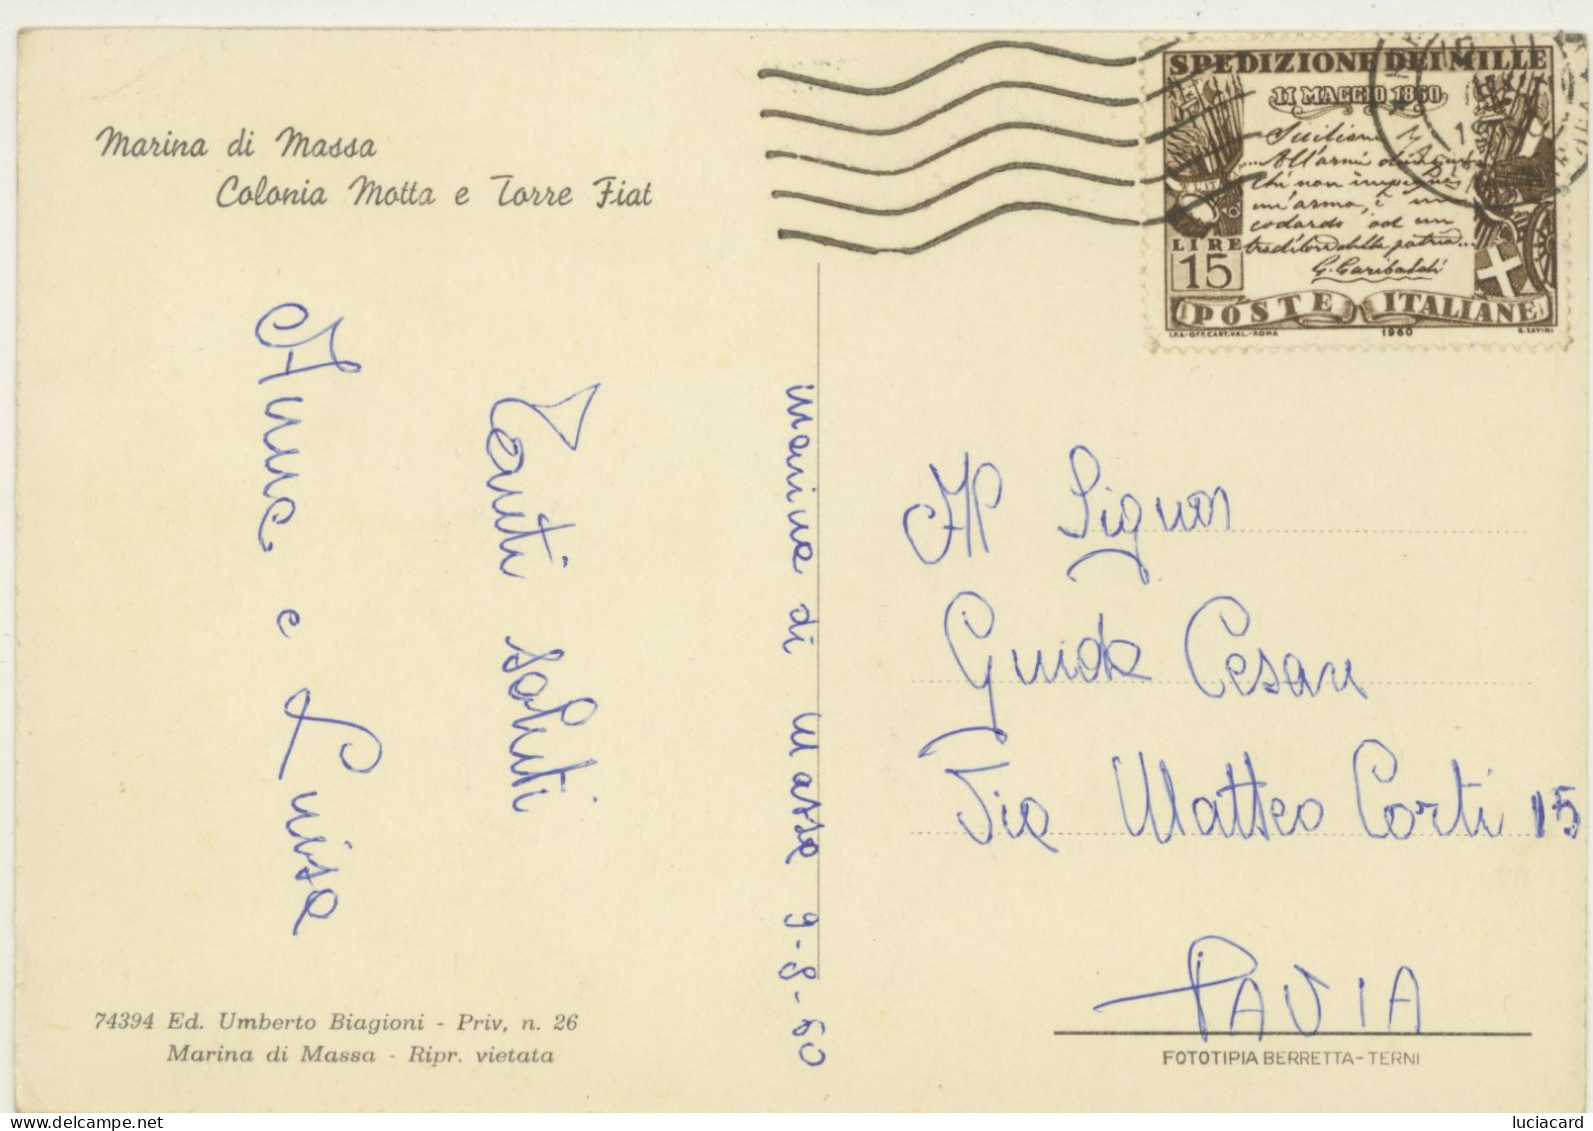 Marina di Massa
Colonia Motta e Torre Fiat
SPEDIZIONE DEI MILLE
11 MAGGIO 1860
Siciliani
....All'armi
Chi non impugna
un'arma, è un
codardo od un
traditore della patria...
G. Garibaldi
LIRE
15
POSTE ITALIANE
I.P.S.-OFF.CART.VAL.-ROMA 1960 G. SAVINI
Tanti saluti
Anna e Luisa
Marina di Massa 9-8-60
Al Signor
Guida Cesare
Via Matteo Corti 15
PAVIA
74394 Ed. Umberto Biagioni - Priv, n. 26
Marina di Massa - Ripr. vietata
FOTOTIPIA BERRETTA-TERNI
luciacard